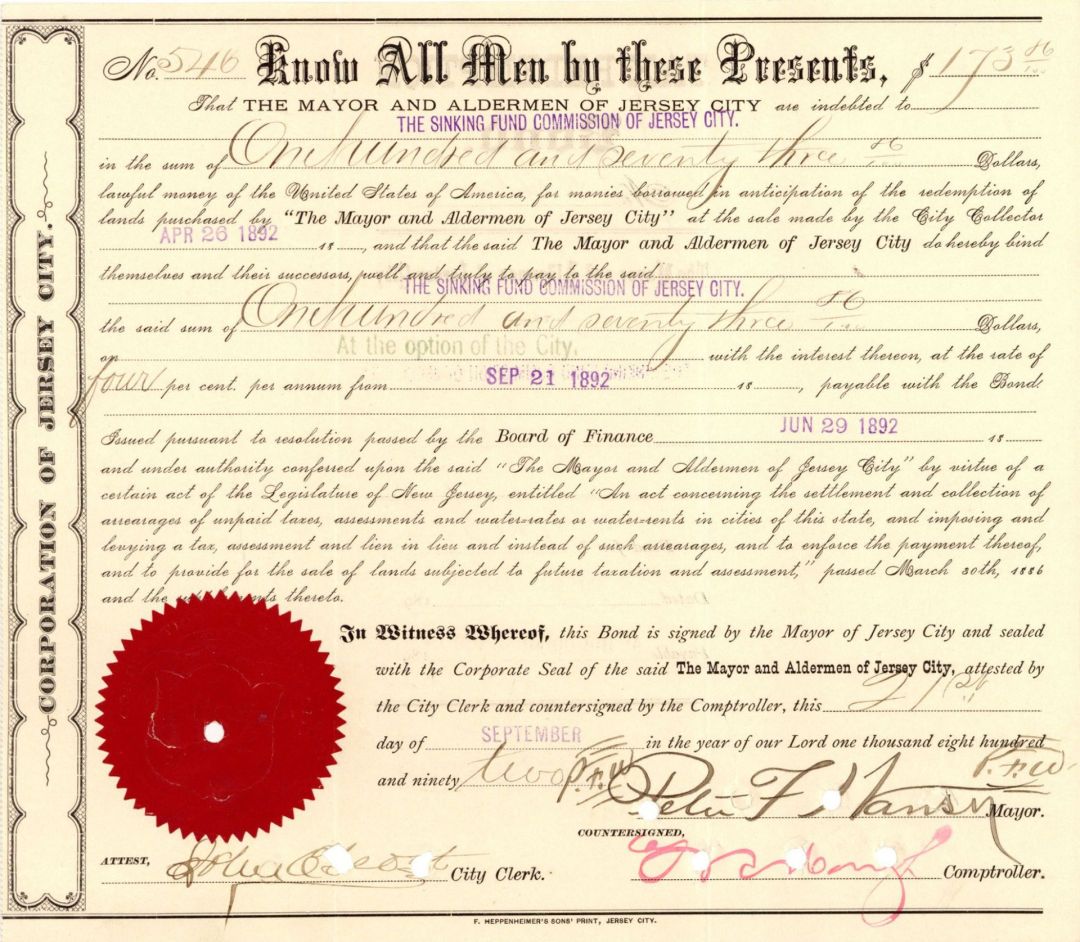 CORPORATION OF JERSEY CITY.
No. 546 Know All Men by these Presents, $ 173 86/100
That THE MAYOR AND ALDERMEN OF JERSEY CITY are indebted to
THE SINKING FUND COMMISSION OF JERSEY CITY.
in the sum of One hundred and seventy three 86/100 Dollars,
lawful money of the United States of America, for monies borrowed in anticipation of the redemption of
lands purchased by "The Mayor and Aldermen of Jersey City" at the sale made by the City Collector
APR 26 1892 18 , and that the said The Mayor and Aldermen of Jersey City do hereby bind
themselves and their successors, well and truly to pay to the said
THE SINKING FUND COMMISSION OF JERSEY CITY.
the said sum of One hundred and seventy three 86/100 Dollars,
on At the option of the City, with the interest thereon, at the rate of
four per cent. per annum from SEP 21 1892 18 , payable with the Bond
Issued pursuant to resolution passed by the Board of Finance JUN 29 1892 18
and under authority conferred upon the said "The Mayor and Aldermen of Jersey City" by virtue of a
certain act of the Legislature of New Jersey, entitled "An act concerning the settlement and collection of
arrearages of unpaid taxes, assessments and water-rates or water-rents in cities of this state, and imposing and
levying a tax, assessment and lien in lieu and instead of such arrearages, and to enforce the payment thereof,
and to provide for the sale of lands subjected to future taxation and assessment," passed March 30th, 1886
and the thereto.
In Witness Whereof, this Bond is signed by the Mayor of Jersey City and sealed
with the Corporate Seal of the said The Mayor and Aldermen of Jersey City, attested by
the City Clerk and countersigned by the Comptroller, this 21st
day of SEPTEMBER in the year of our Lord one thousand eight hundred
and ninety two P.F.W. Peter F Wanser P.F.W. Mayor.
COUNTERSIGNED,
ATTEST, John City Clerk. Comptroller.
F. HEPPENHEIMER'S SONS' PRINT, JERSEY CITY.